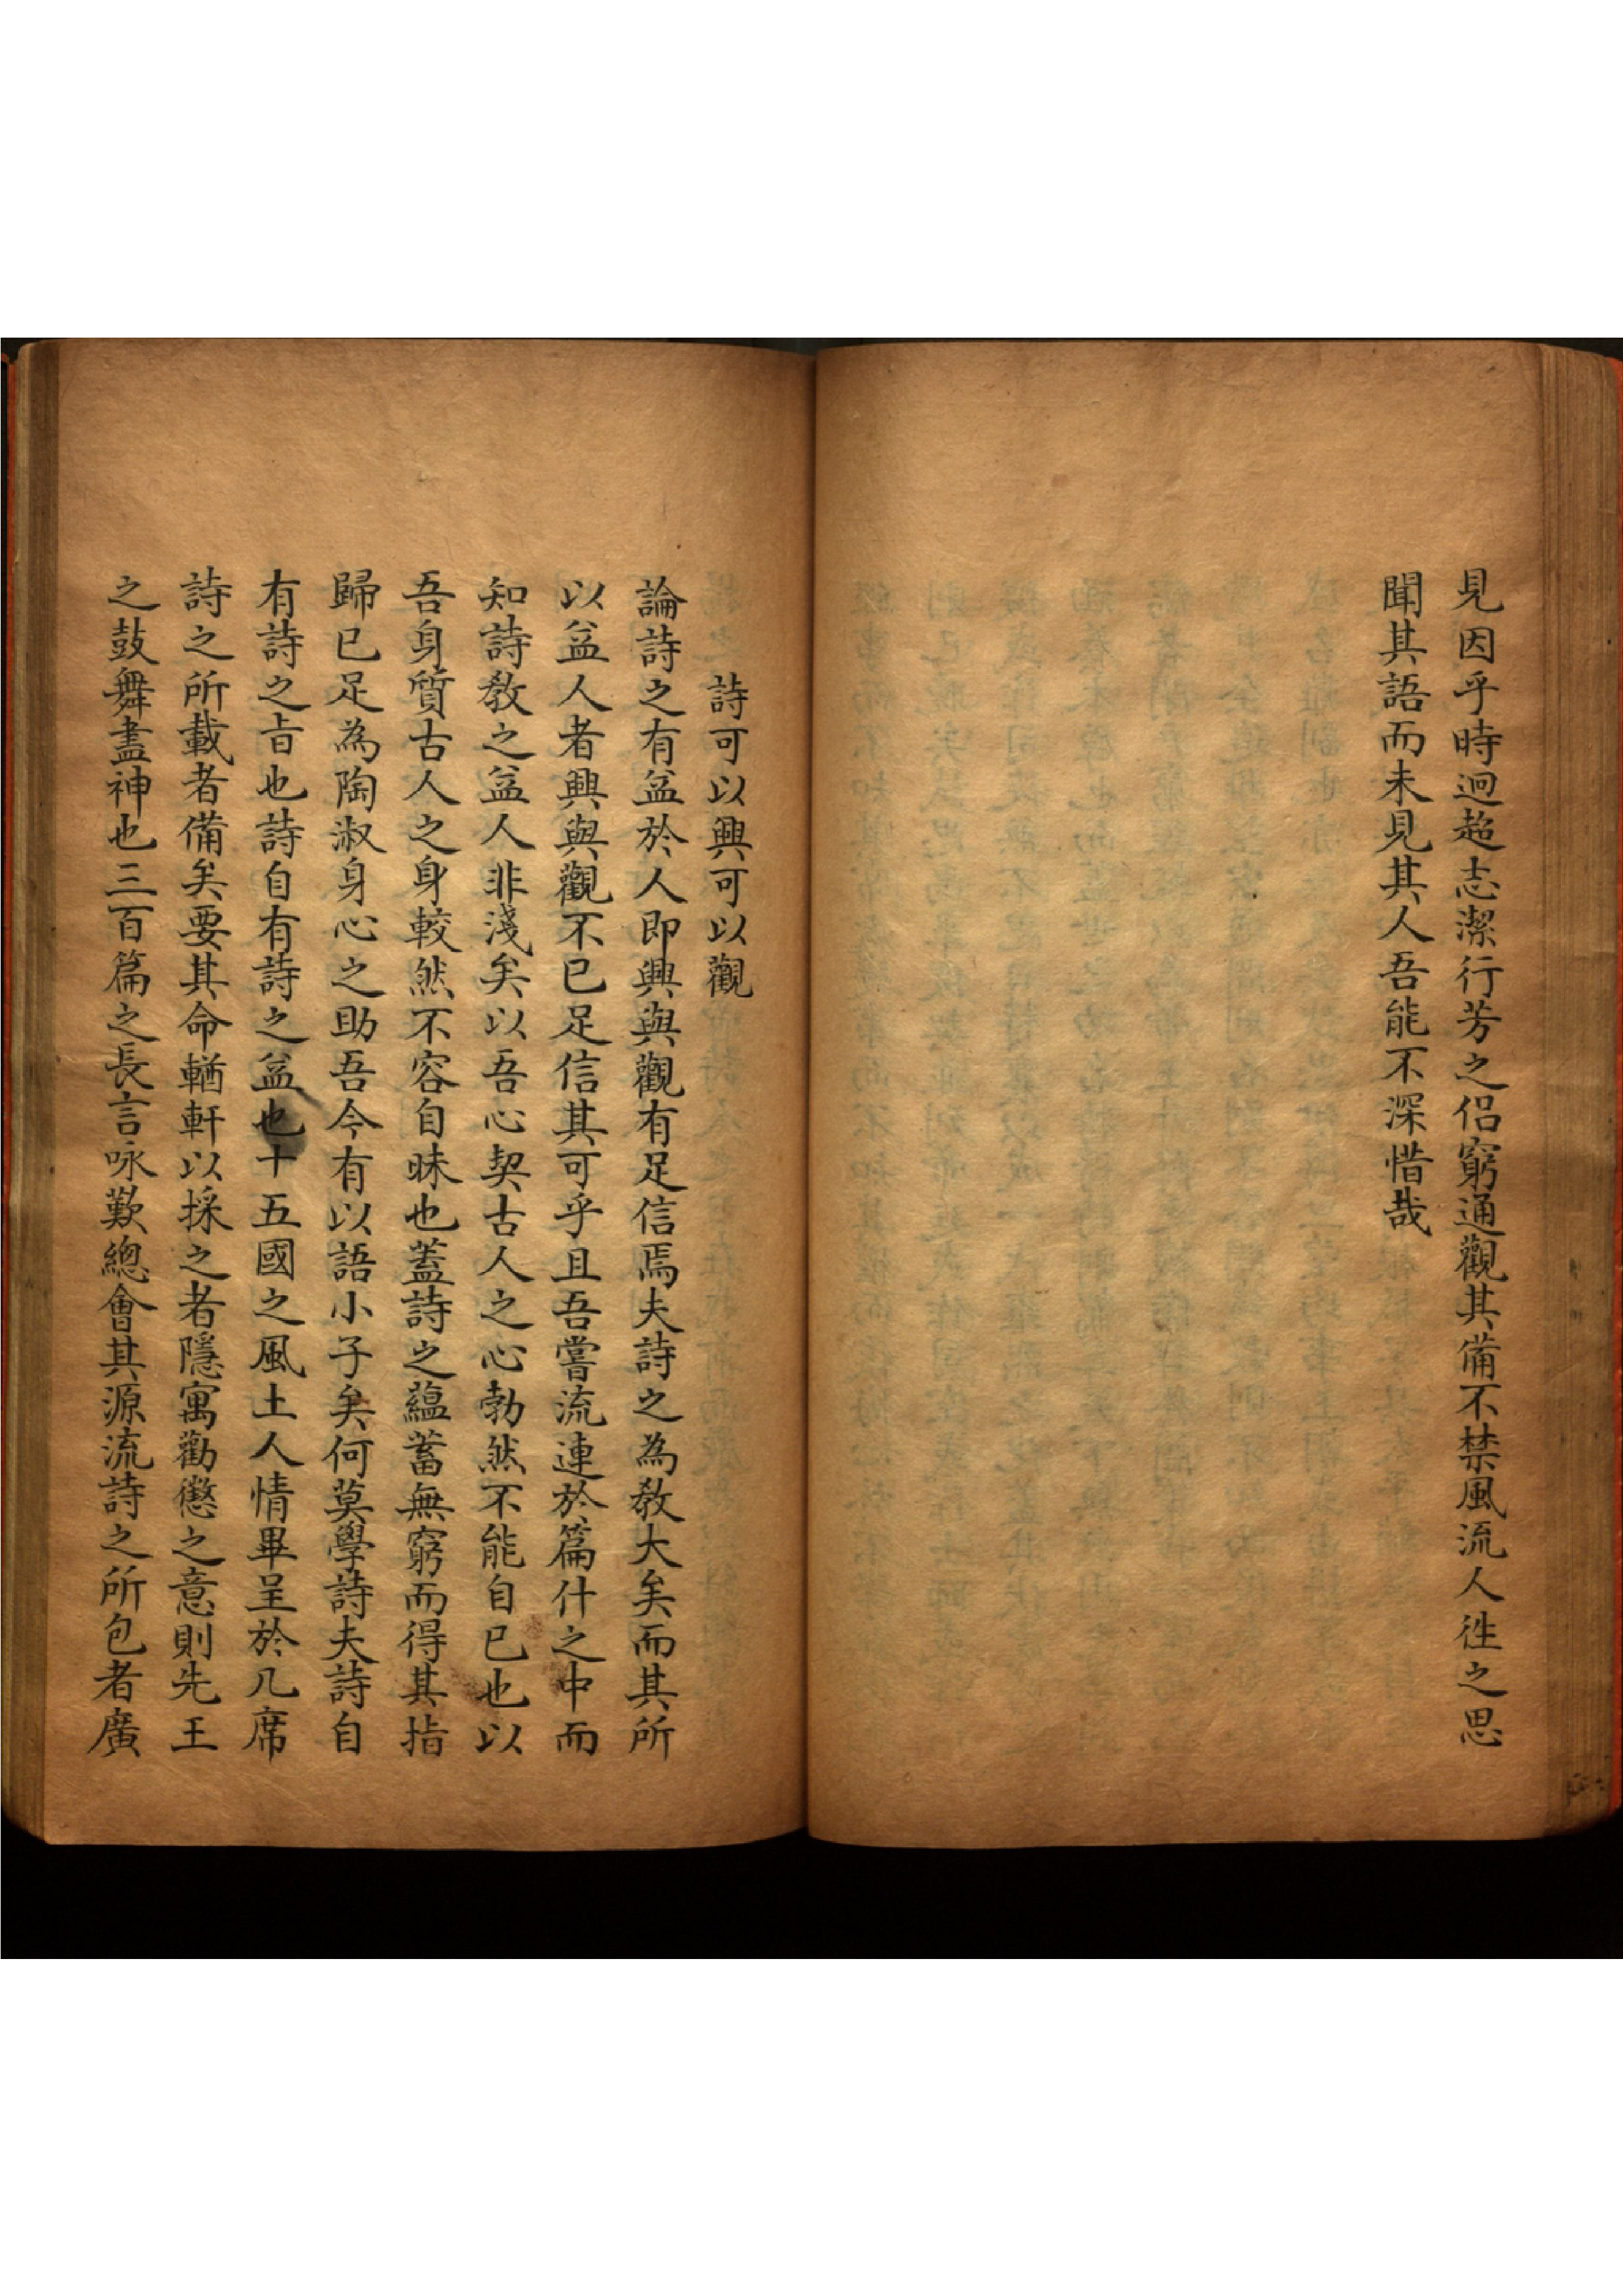 見因乎時迥超志潔行芳之侶窮通觀其備不禁風流人徃之思
聞其語而未見其人吾能不深惜哉
詩可以興可以觀
論詩之有益於人即興與觀有足信焉夫詩之為教大矣而其所
以益人者興與觀不已足信其可乎且吾嘗流連於篇什之中而
知詩教之益人非淺矣以吾心契古人之心勃然不能自已也以
吾身質古人之身較然不容自昧也蓋詩之蘊蓄無窮而得其指
歸已足為陶淑身心之助吾今有以語小子矣何莫學詩夫詩自
有詩之旨也詩自有詩之益也十五國之風土人情畢呈於几席
詩之所載者備矣要其命輶軒以採之者隱寓勸懲之意則先王
之鼓舞盡神也三百篇之長言咏歎總會其源流詩之所包者廣